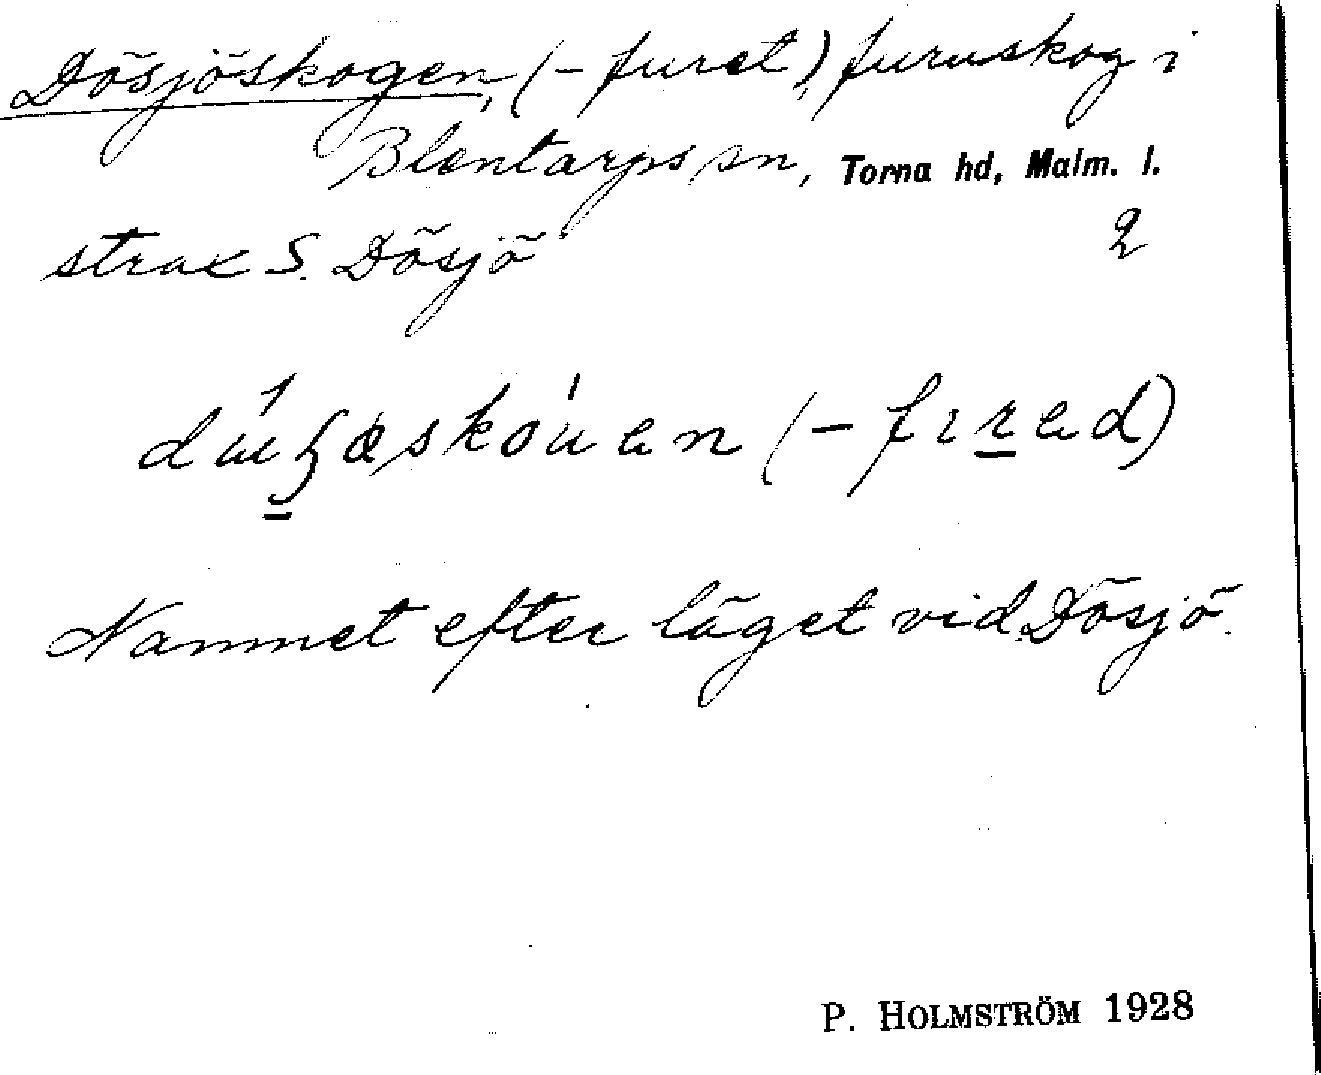 Dösjöskogen, (-furet), furuskog i
Blentarps sn, Torna hd, Malm. l.
strax S. Dösjö 2
(-fired)
Namnet efter läget vid Dösjö.
P. HOLMSTRÖM 1928